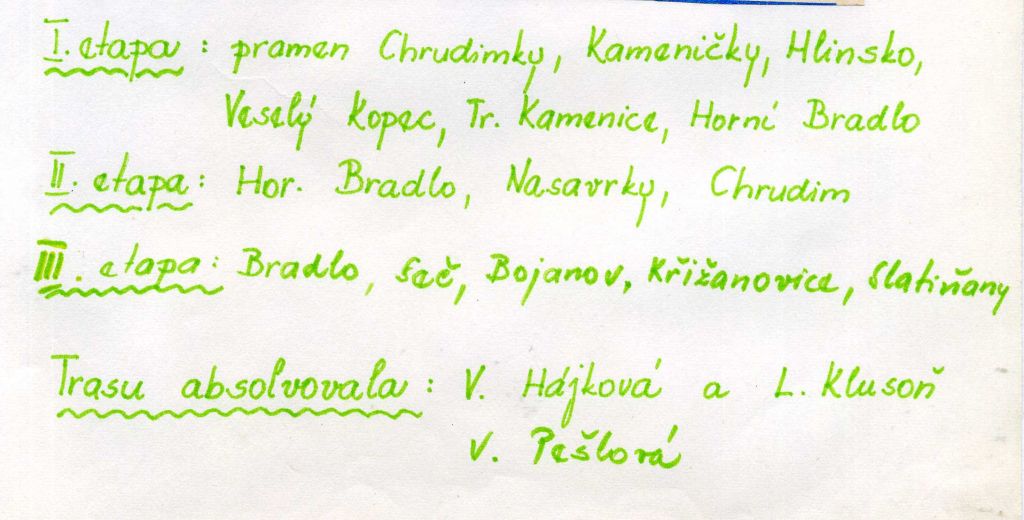 I. etapa : pramen Chrudimky, Kameničky, Hlinsko,
Veselý Kopec, Tr. Kamenice, Horní Bradlo
II. etapa : Hor. Bradlo, Nasavrky, Chrudim
III. etapa : Bradlo, Seč, Bojanov, Křižanovice, Slatiňany
Trasu absolvovala : V. Hájková a L. Klusoň
V. Pešlová